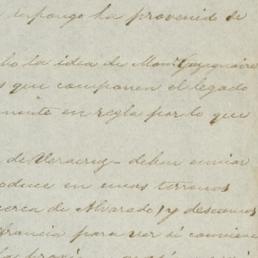 ha provenido de
la idea de Mont
s que componen el legado
mente en regla por lo que
de Veracruz deben enviar
oduce en unos terrenos
cerca de Alvarado, y deseamos
Francia para ver si conviene